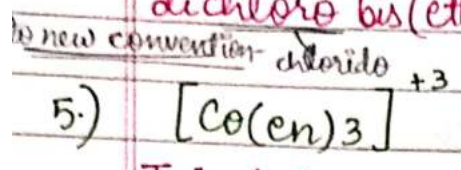 dichloro bis(et
new convention chlorido
5.) [Co(en)3]+3